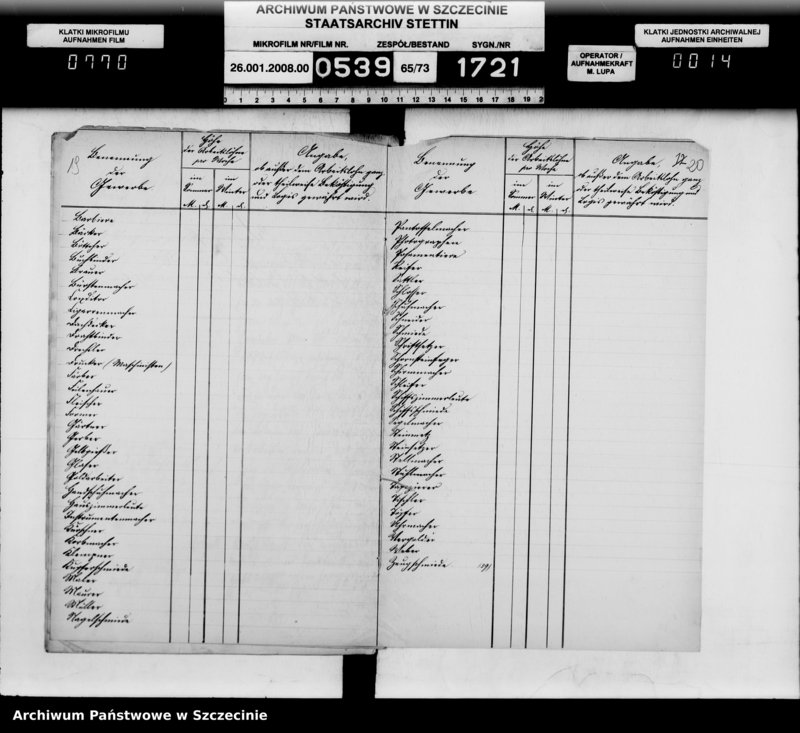 ARCHIWUM PAŃSTWOWE W SZCZECINIE
STAATSARCHIV STETTIN
KLATKI MIKROFILMU
AUFNAHMEN FILM
0770
MIKROFILM NR/FILM NR.
ZESPÓŁ/BESTAND
SYGN./NR
26.001.2008.00
0539
65/73
1721
OPERATOR /
AUFNAHMEKRAFT
M. LUPA
KLATKI JEDNOSTKI ARCHIWALNEJ
AUFNAHMEN EINHEITEN
0014
0 1 2 3 4 5 6 7 8 9 10 11 12 13 14 15 16 17 18 19 20
19
Benennung
der
Gewerbe
Höhe
der Arbeitslöhne
pro Woche
im
Sommer
im
Winter
M. d. M. d.
Angabe,
ob außer dem Arbeitslohn ganz
oder theilweise Beköstigung
und Logis gewährt wird.
Barbiere
Bäcker
Böttcher
Buchbinder
Brauer
Bürstenmacher
Conditor
Cigarrenmacher
Dachdecker
Drahtbinder
Drechsler
Drucker (Maschinisten)
Färber
Feilenhauer
Fleischer
Former
Gärtner
Gerber
Gelbgießer
Glaser
Goldarbeiter
Handschuhmacher
Hauszimmerleute
Instrumentenmacher
Kürschner
Korbmacher
Klempner
Kupferschmiede
Maler
Maurer
Müller
Nagelschmiede
20
Benennung
der
Gewerbe
Höhe
der Arbeitslöhne
pro Woche
im
Sommer
im
Winter
M. d. M. d.
Angabe,
ob außer dem Arbeitslohn ganz
oder theilweise Beköstigung und
Logis gewährt wird.
Pantoffelmacher
Photographen
Posamentiere
Reifer
Sattler
Schlosser
Schuhmacher
Schneider
Schmiede
Schriftsetzer
Schornsteinfeger
Schirmmacher
Schleifer
Schiffszimmerleute
Schiffsschmiede
Segelmacher
Steinmetz
Steinsetzer
Stellmacher
Stuhlmacher
Tapezierer
Tischler
Töpfer
Uhrmacher
Vergolder
Weber
Zeugschmiede
Archiwum Państwowe w Szczecinie